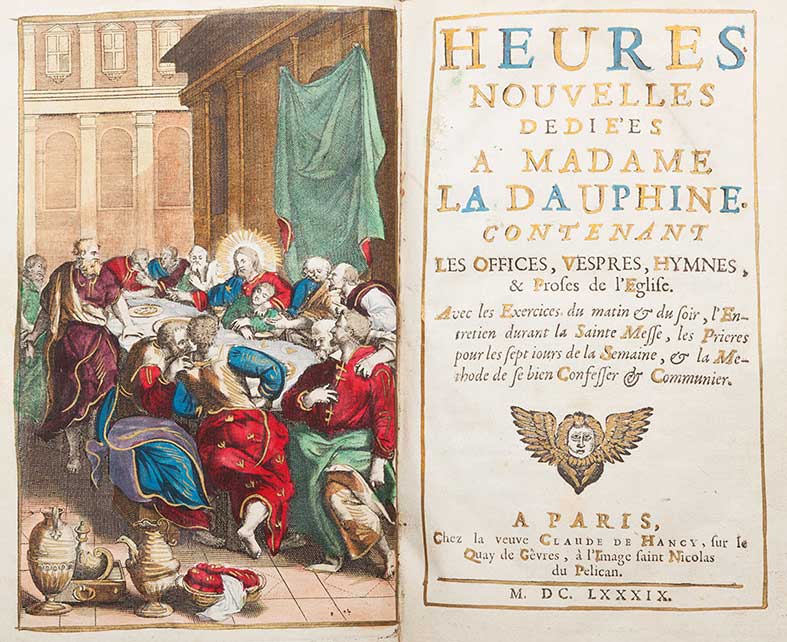 HEURES
NOUVELLES
DEDIE'ES
A MADAME
LA DAUPHINE.
CONTENANT
LES OFFICES, VESPRES, HYMNES,
& Proses de l'Eglise.
Avec les Exercices du matin & du soir, l'En-
tretien durant la Sainte Messe, les Prieres
pour les sept iours de la Semaine, & la Me-
thode de se bien Confesser & Communier.
A PARIS,
Chez la veuve CLAUDE DE HANCY, sur le
Quay de Gêvres, à l'Image saint Nicolas
du Pelican.
M. DC. LXXXIX.